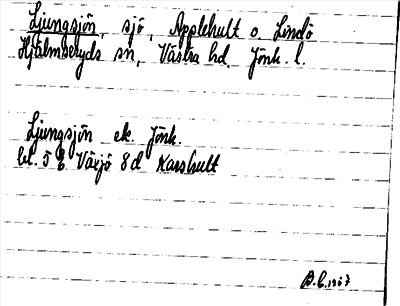 Ljungsjön, sjö, Applehult o. Lindö
Hjälmseryds sn, Västra hd. Jönk. l.
Ljungsjön ek. Jönk.
bl. 5 E Växjö 8d Karshult
B.E. 1967